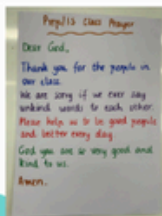 Primary 1S Class Prayer
Dear God,
Thank you for the people in
our class.
We are sorry if we ever say
unkind words to each other.
Please help us to be good people
and better every day.
God you are so very good and
kind to us.
Amen.